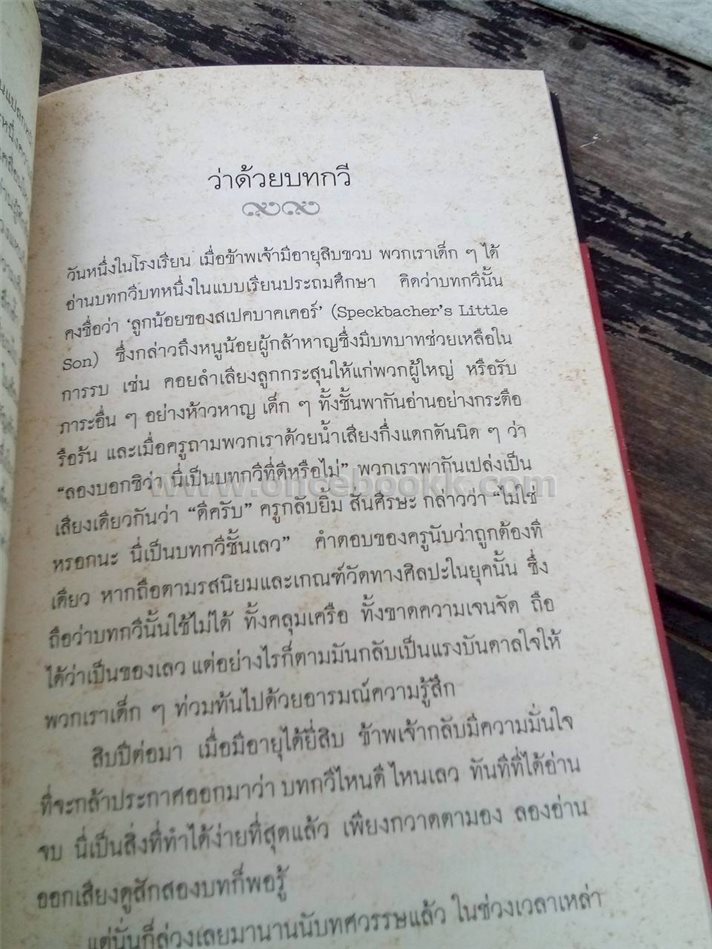 ว่าด้วยบทกวี
วันหนึ่งในโรงเรียน เมื่อข้าพเจ้ามีอายุสิบขวบ พวกเราเด็ก ๆ ได้
อ่านบทกวีบทหนึ่งในแบบเรียนประถมศึกษา คิดว่าบทกวีนั้น
คงชื่อว่า ‘ลูกน้อยของสเปคบาคเคอร์’ (Speckbacher's Little
Son) ซึ่งกล่าวถึงหนูน้อยผู้กล้าหาญซึ่งมีบทบาทช่วยเหลือใน
การรบ เช่น คอยลำเลียงลูกกระสุนให้แก่พวกผู้ใหญ่ หรือรับ
ภาระอื่น ๆ อย่างห้าวหาญ เด็ก ๆ ทั้งชั้นพากันอ่านอย่างกระตือ
รือร้น และเมื่อครูถามพวกเราด้วยน้ำเสียงกึ่งแดกดันนิด ๆ ว่า
“ลองบอกซิว่า นี่เป็นบทกวีที่ดีหรือไม่” พวกเราพากันเปล่งเป็น
เสียงเดียวกันว่า “ดีครับ” ครูกลับยิ้ม สั่นศีรษะ กล่าวว่า “ไม่ใช่
หรอกนะ นี่เป็นบทกวีชั้นเลว” คำตอบของครูนับว่าถูกต้องที
เดียว หากถือตามรสนิยมและเกณฑ์วัดทางศิลปะในยุคนั้น ซึ่ง
ถือว่าบทกวีนั้นใช้ไม่ได้ ทั้งคลุมเครือ ทั้งขาดความเจนจัด ถือ
ได้ว่าเป็นของเลว แต่อย่างไรก็ตามมันกลับเป็นแรงบันดาลใจให้
พวกเราเด็ก ๆ ท่วมท้นไปด้วยอารมณ์ความรู้สึก
สิบปีต่อมา เมื่อมีอายุได้ยี่สิบ ข้าพเจ้ากลับมีความมั่นใจ
ที่จะกล้าประกาศออกมาว่า บทกวีไหนดี ไหนเลว ทันทีที่ได้อ่าน
จบ นี่เป็นสิ่งที่ทำได้ง่ายที่สุดแล้ว เพียงกวาดตามอง ลองอ่าน
ออกเสียงดูสักสองบทก็พอรู้
แต่นั่นก็ล่วงเลยมานานนับทศวรรษแล้ว ในช่วงเวลาเหล่า
www.oncebookk.com